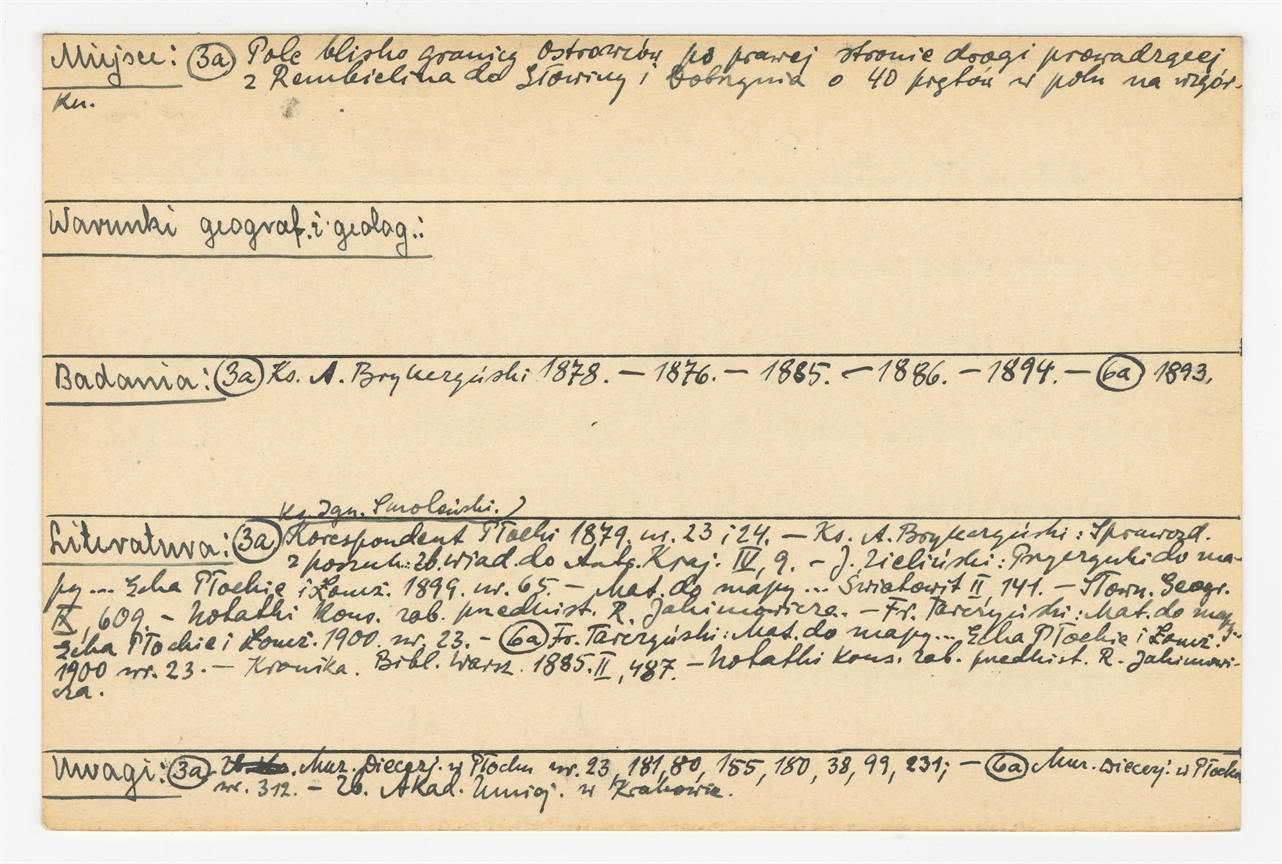 Miejsce: (3a) Pole blisko granicy Ostrowitów po prawej stronie drogi prowadzącej
z Rembielina do Słowiny i Dobrzynia o 40 prętów w polu na wzgór-
ku.
Warunki geograf. i geolog.:
Badania: (3a) Ks. A. Brykczyński 1878. — 1876. — 1885. — 1886. — 1894. — (6a) 1893.
Ks. Ign. Smoleński.)
Literatura: (3a) Korespondent Płocki 1879. nr. 23 i 24. — Ks. A. Brykczyński: Sprawozd.
z poszuk: Zb. wiad. do Antr. Kraj. IV, 9. — J. Zieliński: Przyczynki do ma-
py... Echa Płockie i Łomż. 1899. nr. 65. — Mat. do mapy... Światowit II, 141. — Słown. Geogr.
IX, 609. — Notatki Kons. zab. przedhist. R. Jakimowicza. — Fr. Tarczyński: Mat. do mapy...
Echa Płockie i Łomż. 1900. nr. 23. — (6a) Fr. Tarczyński: Mat. do mapy... Echa Płockie i Łomż.
1900 nr. 23. — Kronika. Bibl. Warsz. 1885. II, 487. — Notatki Kons. zab. przedhist. R. Jakimowi-
cza.
Uwagi: (3a) Muz. Diecezj. w Płocku nr. 23, 181, 80, 155, 180, 38, 99, 231; — (6a) Muz. Diecezj. w Płocku
nr. 312. — Zb. Akad. Umiej. w Krakowie.